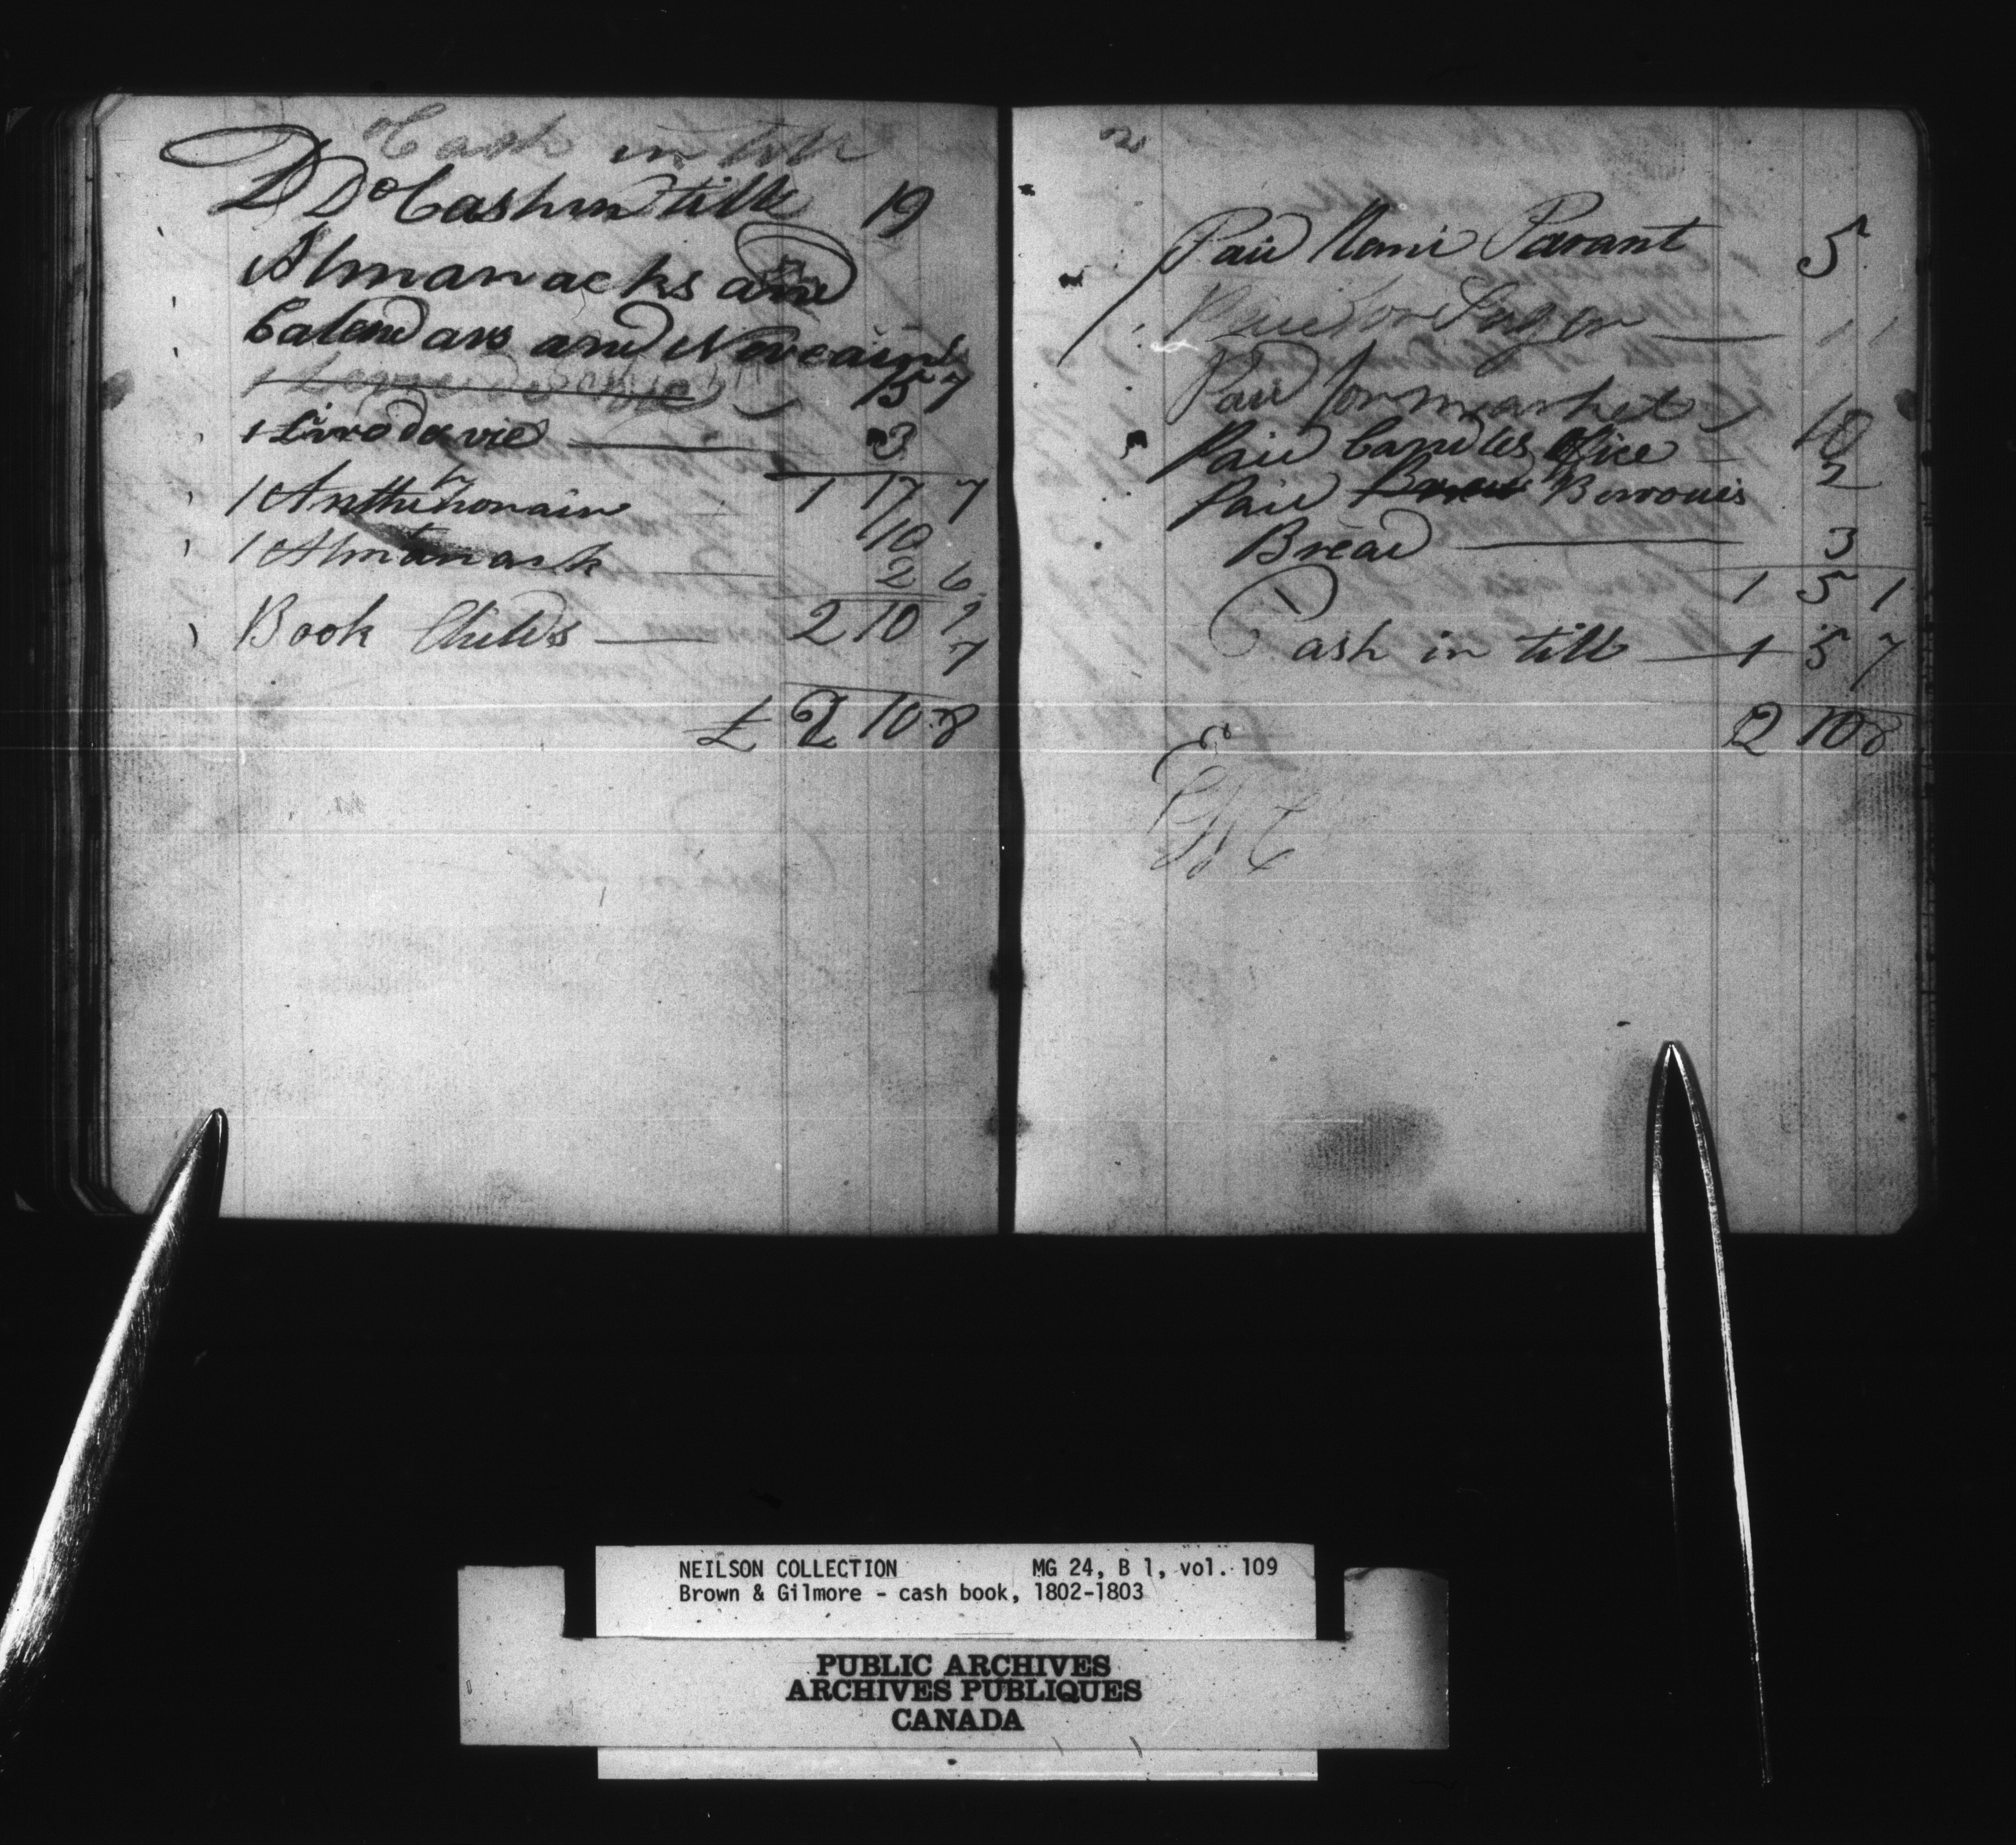 Cash in till
D Do Cash in till 19
Almanacks and
Calendars and Neuvains
15 7
1 Livre de vie 3
1 Anthiphonair 1 17 7
10
1 Almanack 2 6
Book Childs 2 10 1
7
£ 2 10 8
Paid Remi Parant 5
Paid for Sugar 1 1
Paid for market
Paid Candles Office 10
Paid Borrowis 2
Bread 3
1 5 1
Cash in till 1 5 7
2 10 8
NEILSON COLLECTION MG 24, B 1, vol. 109
Brown & Gilmore - cash book, 1802-1803
PUBLIC ARCHIVES
ARCHIVES PUBLIQUES
CANADA